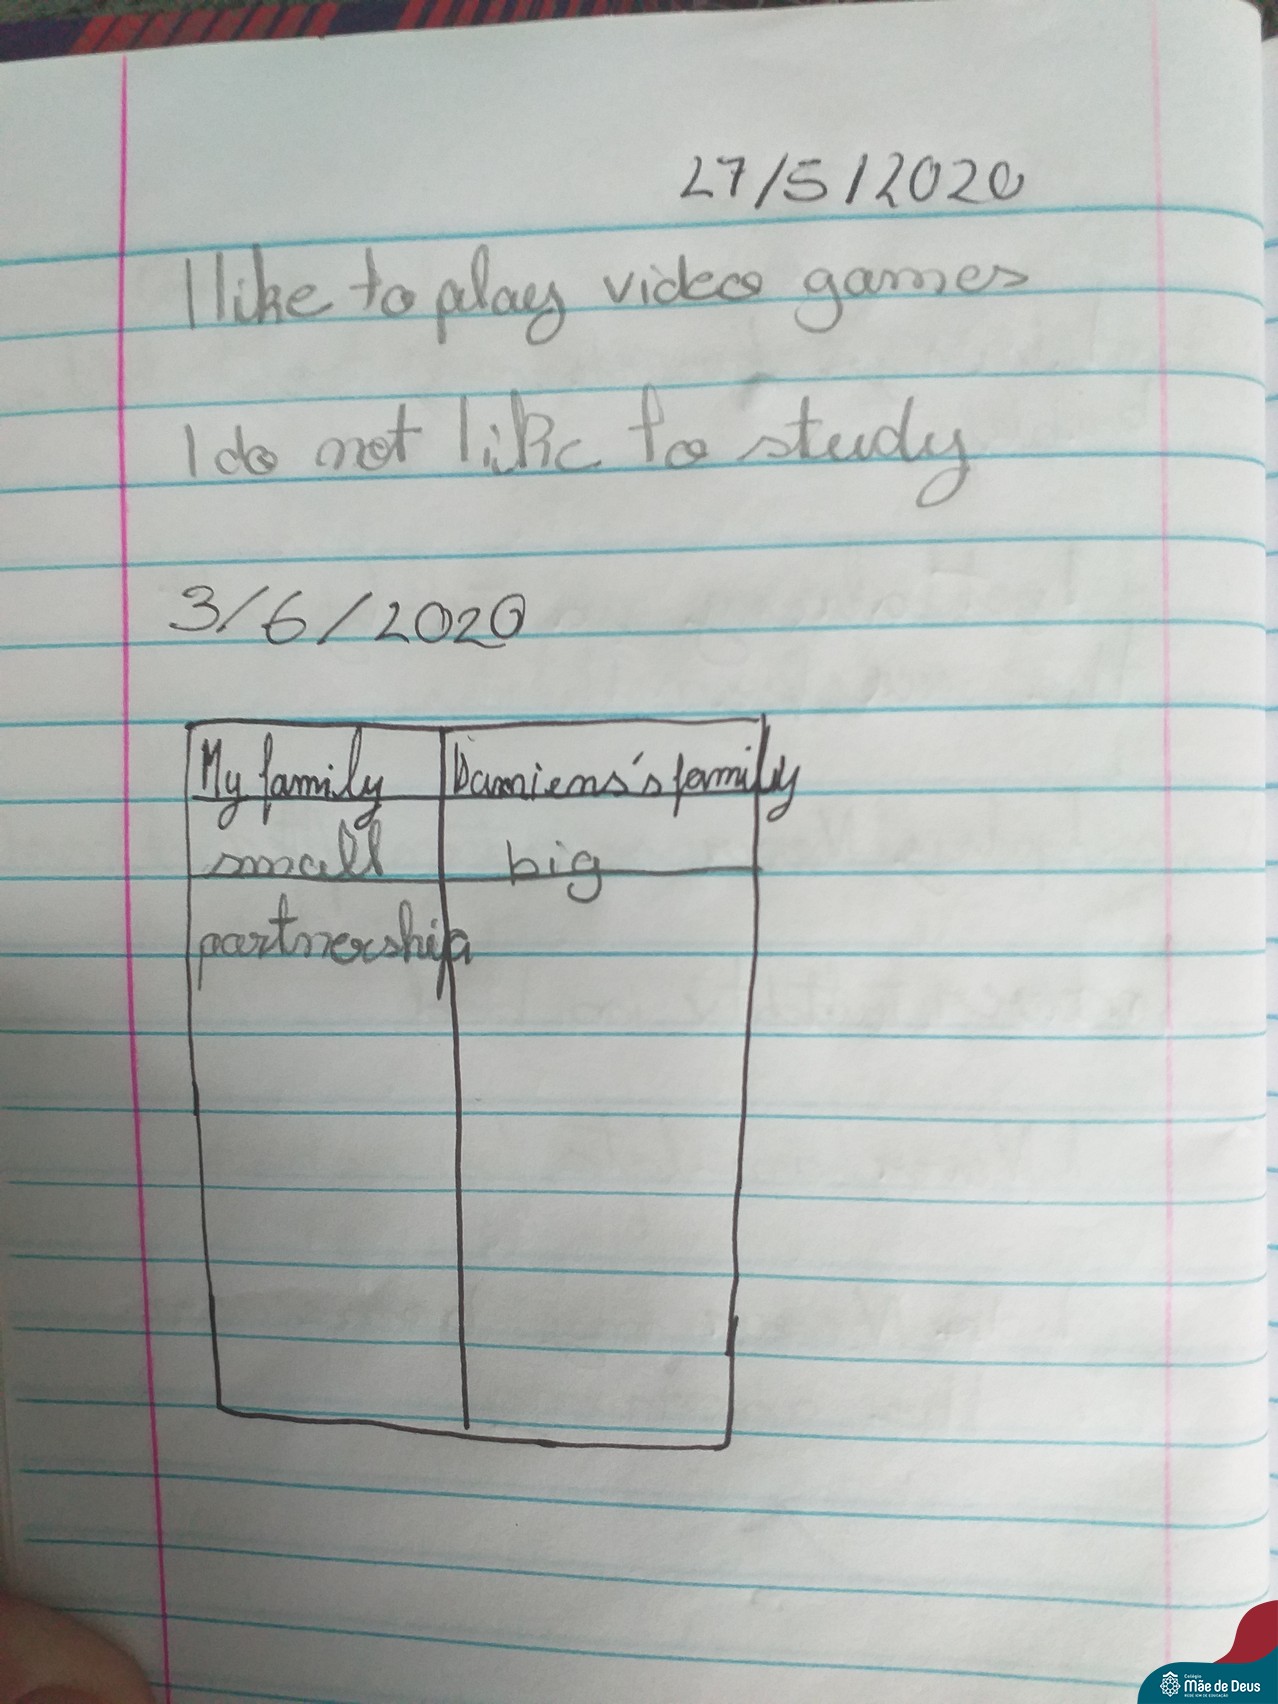 27/5/2020
I like to play video games
I do not like to study
3/6/2020
My family Damiens's family
small big
partnership
Colégio
Mãe de Deus
REDE ICM DE EDUCAÇÃO